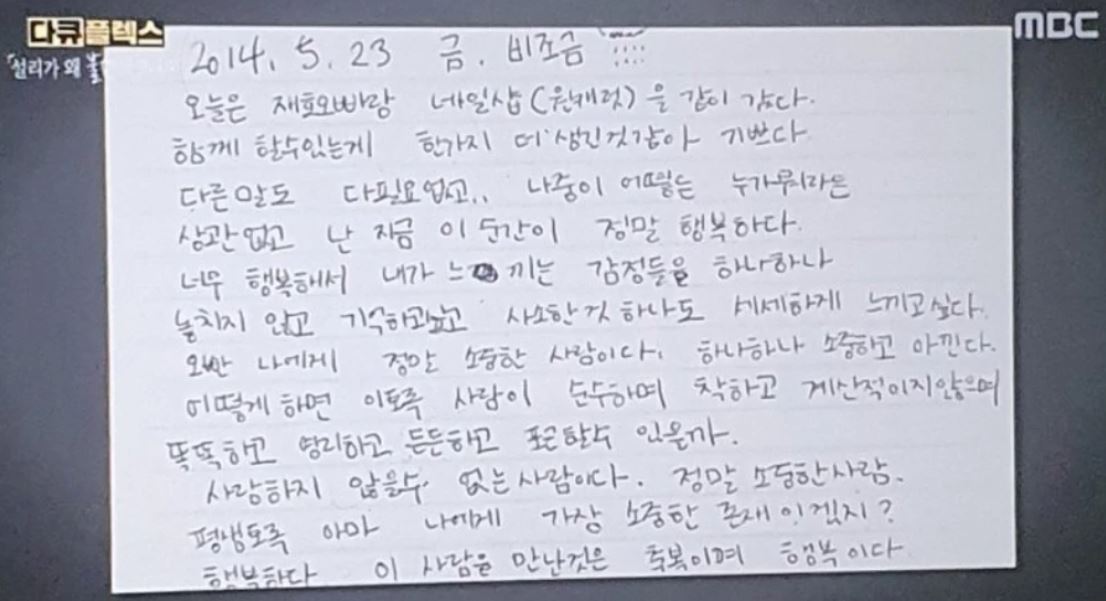 다큐플렉스
MBC
「설리가 왜 불
2014. 5. 23 금. 비조금
오늘은 재호오빠랑 네일샵(원캐럿)을 같이 갔다.
함께 할수있는게 한가지 더 생긴것같아 기쁘다
다른말도 다필요없고.. 나중이 어떻든 누가뭐라든
상관없고 난 지금 이 순간이 정말 행복하다.
너무 행복해서 내가 느끼는 감정들을 하나하나
놓치지 않고 기억하고싶고 사소한것 하나도 세세하게 느끼고싶다.
오빤 나에게 정말 소중한 사람이다. 하나하나 소중하고 아낀다.
어떻게 하면 이토록 사람이 순수하며 착하고 계산적이지않으며
똑똑하고 영리하고 든든하고 포근할수 있을까.
사랑하지 않을수 없는사람이다. 정말 소중한사람.
평생토록 아마 나에게 가장 소중한 존재이겠지?
행복하다 이 사람을 만난것은 축복이며 행복이다